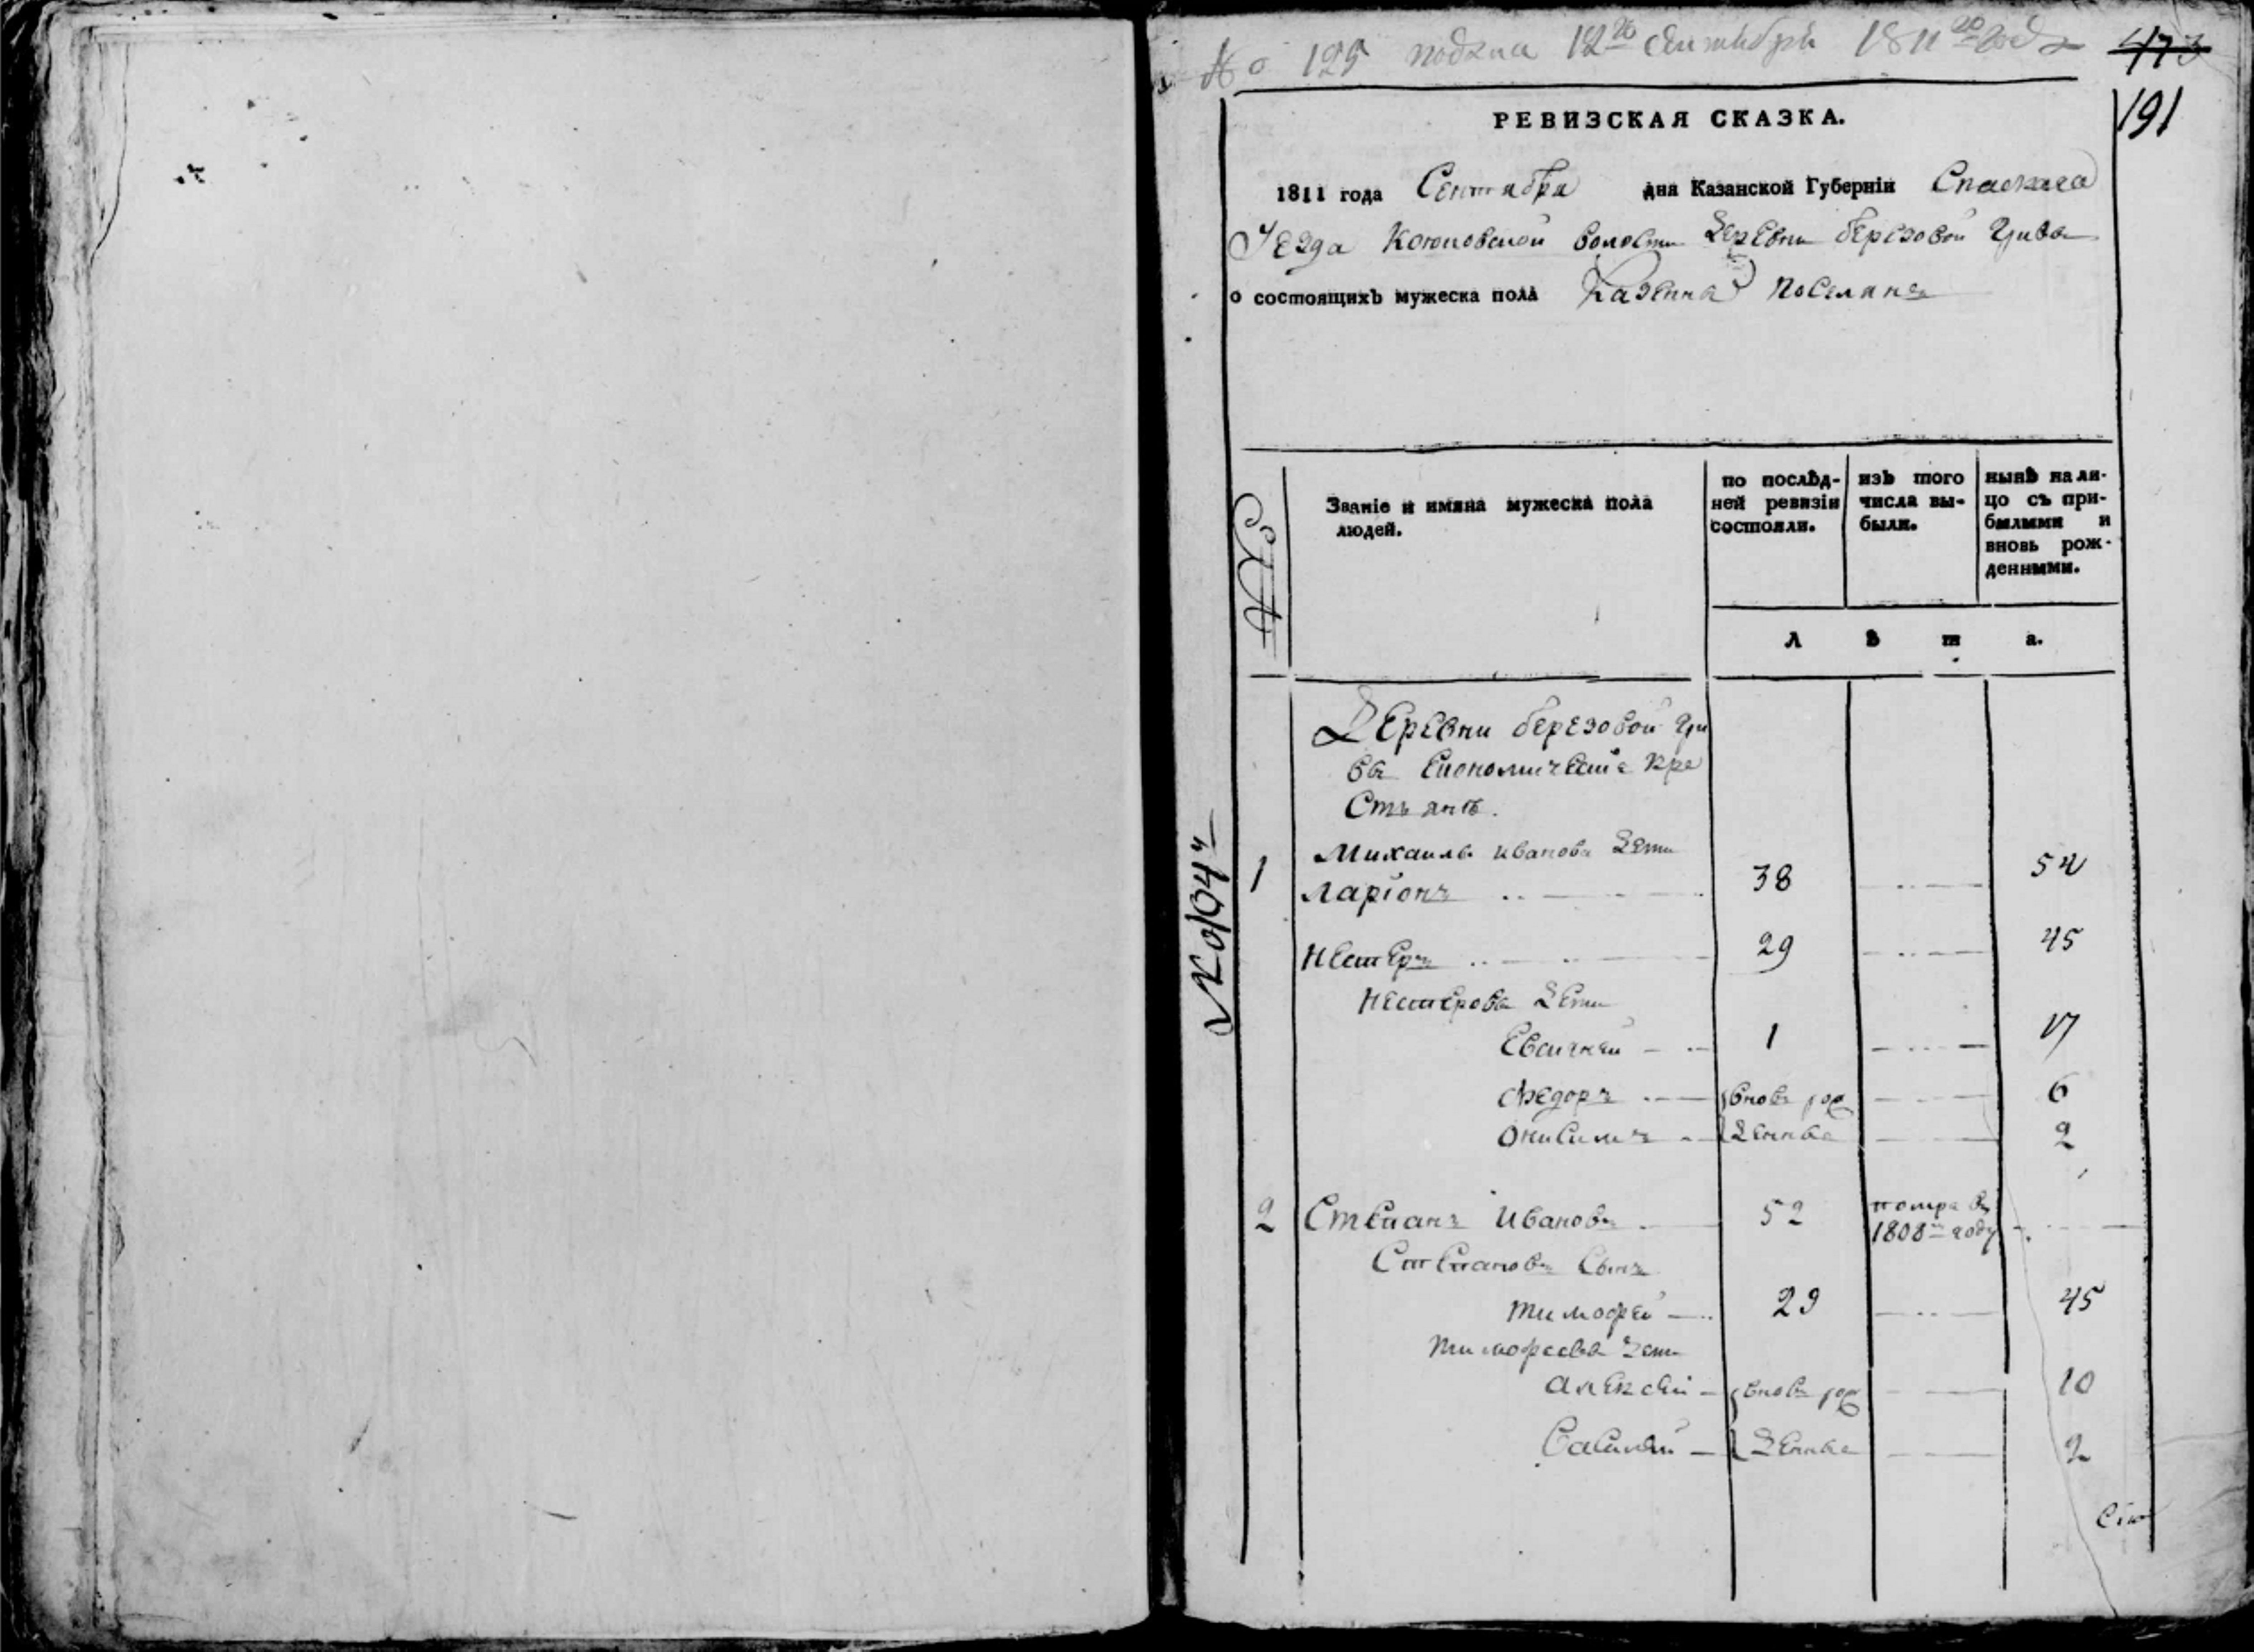 № 125 подана 12го Сентября 1811го года 473
191
РЕВИЗСКАЯ СКАЗКА.
1811 года Сентября дня Казанской Губерніи Спаскаго
Уезда волости Деревни березовой Гривы
о состоящихЪ мужеска пола Казенныхъ Поселянъ
№
Званіе и имяна мужеска пола людей.
по послѣд-
ней ревизіи
состояли.
изЪ того
числа вы-
были.
нынѣ на ли-
цо съ при-
былыми и
вновь рож-
денными.
Л ѣ т а.
Деревни березовой гри
вы Економическіе кре
стьянѣ.
Михаилы иванова Дети
1 Ларіонъ 38 54
Нестеръ 29 45
Нестерова Дети
Евсигней 1 17
Федоръ вновь рож 6
Онисимъ Денные 2
2 Степанъ Ивановъ 52 помре въ
1808м году
Степановъ Сынъ
тимофей 29 45
тимофеева дети
алексей вновь рож 10
Василей Денные 2